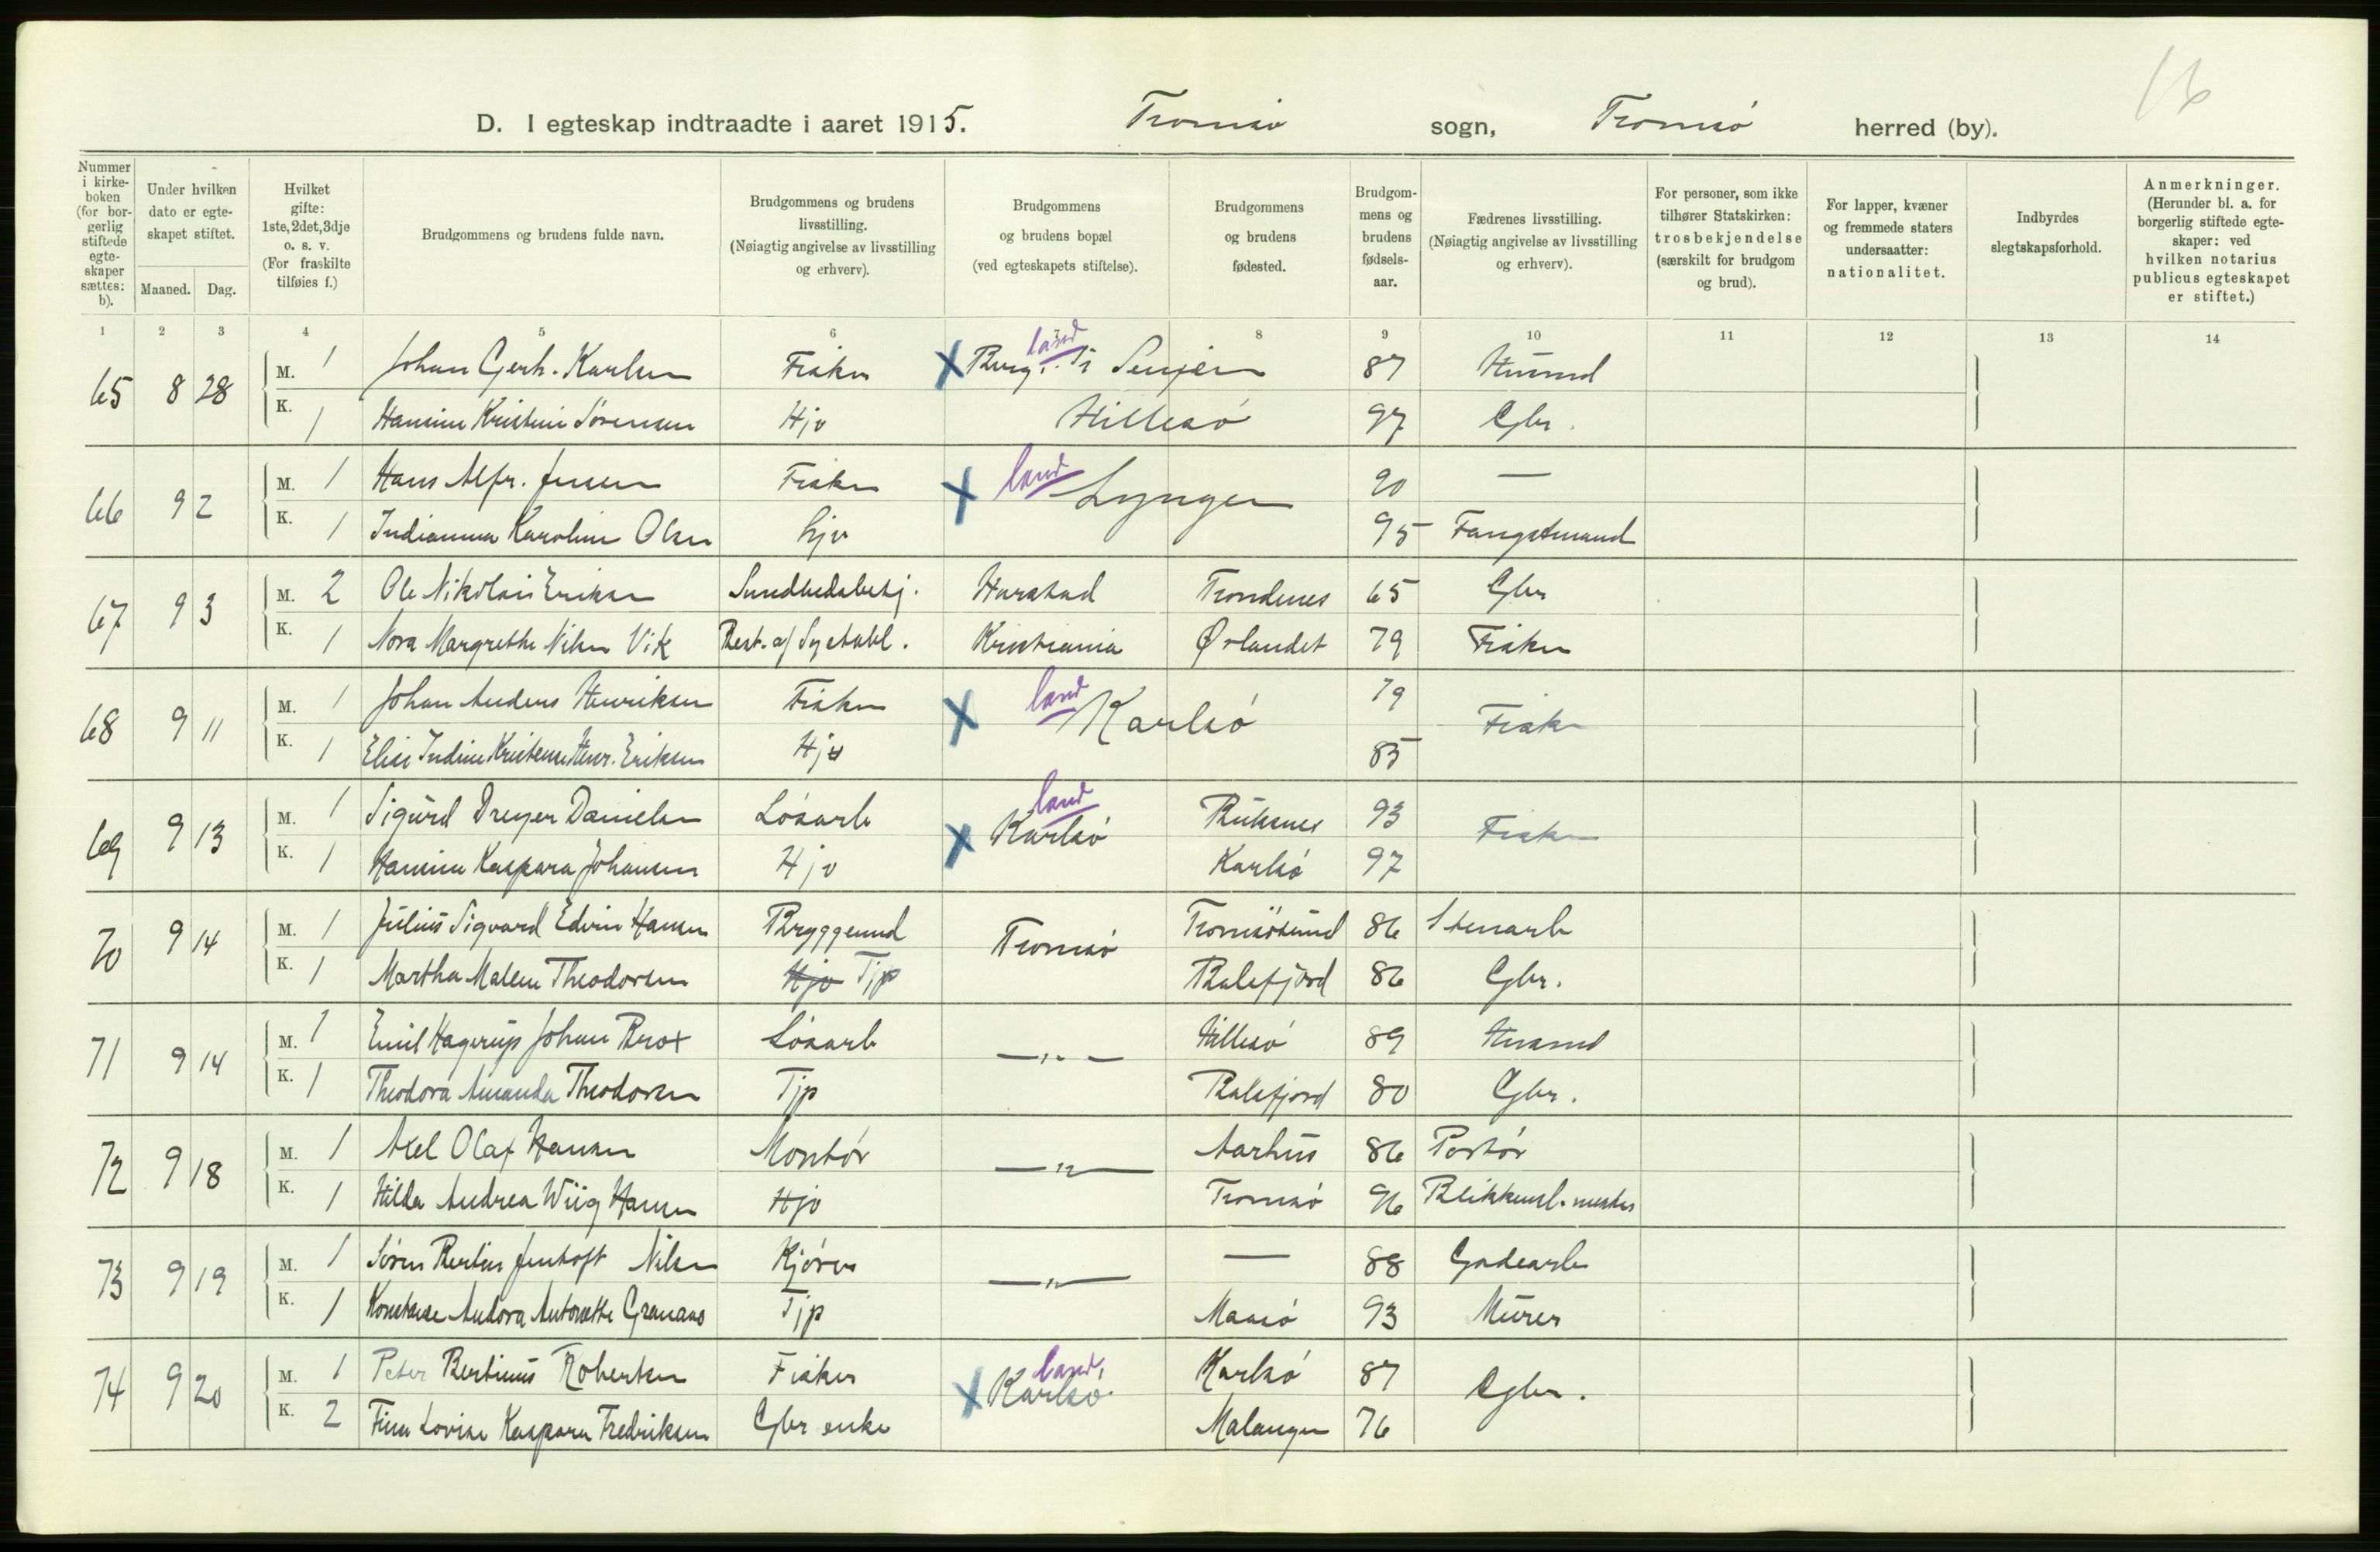 16
D. I egteskap indtraadte i aaret 1915. Tromsø sogn, Tromsø herred (by).
Nummer i kirkeboken (for borgerlig stiftede egteskaper sættes: b).
Under hvilken dato er egteskapet stiftet.
Maaned. Dag.
Hvilket gifte: 1ste, 2det, 3dje o. s. v. (For fraskilte tilføies f.)
Brudgommens og brudens fulde navn.
Brudgommens og brudens livsstilling. (Nøiagtig angivelse av livsstilling og erhverv).
Brudgommens og brudens bopæl (ved egteskapets stiftelse).
Brudgommens og brudens fødested.
Brudgommens og brudens fødselsaar.
Fædrenes livsstilling. (Nøiagtig angivelse av livsstilling og erhverv).
For personer, som ikke tilhører Statskirken: trosbekjendelse (særskilt for brudgom og brud).
For lapper, kvæner og fremmede staters undersaatter: nationalitet.
Indbyrdes slegtskapsforhold.
Anmerkninger. (Herunder bl. a. for borgerlig stiftede egteskaper: ved hvilken notarius publicus egteskapet er stiftet.)
1 2 3 4 5 6 7 8 9 10 11 12 13 14
65 8 28 M. 1 Johan Gerh. Karlsen Fisker X Berg i Senjen land 87 Husmd
K. 1 Hansine Kristine Sørensen Hjv Hillesø 97 Gbr.
66 9 2 M. 1 Hans Alfr. Jensen Fisker X land Lyngen 90 —
K. 1 Indianna Karoline Olsen hjv 95 Fangstmand
67 9 3 M. 2 Ole Nikolai Eriksen Sundhedsbetj. Harstad Trondenes 65 Gbr
K. 1 Nora Margrethe Nilsen Vik Best. af Systabl. Kristiania Ørlandet 79 Fisker
68 9 11 M. 1 Johan Anders Henriksen Fisker X land Karlsø 79 Fisker
K. 1 Elise Indine Kristense Henr. Eriksen Hjv 85
69 9 13 M. 1 Sigurd Dreyer Danielsen Løsarb X land Karlsø Buksnes 93 Fisker
K. 1 Hansine Kaspara Johansen Hjv Karlsø 97
70 9 14 M. 1 Julius Sigvard Edvin Hansen Bryggemd Tromsø Tromsøsund 86 Stenarb
K. 1 Martha Malene Theodorsen Hjv Tjp Balsfjord 86 Gbr.
71 9 14 M. 1 Emil Hagerup Johan Brox Løsarb —"— Hillesø 89 Husmd
K. 1 Theodora Amanda Theodorsen Tjp Balsfjord 80 Gbr.
72 9 18 M. 1 Axel Olaf Hansen Montør —"— Aarhus 86 Portør
K. 1 Hilda Andrea Wiig Hansen Hjv Tromsø 96 Blikkensl.mester
73 9 19 M. 1 Søren Bertin Jentoft Nilsen Kjører —"— — 88 Gadearb
K. 1 Konstanse Andora Antonette Granaas Tjp Maasø 93 Murer
74 9 20 M. 1 Peter Bertinus Robertsen Fisker X land, Karlsø Karlsø 87 Gbr.
K. 2 Fina Lovise Kaspara Fredriksen Gbr enke Malangen 76